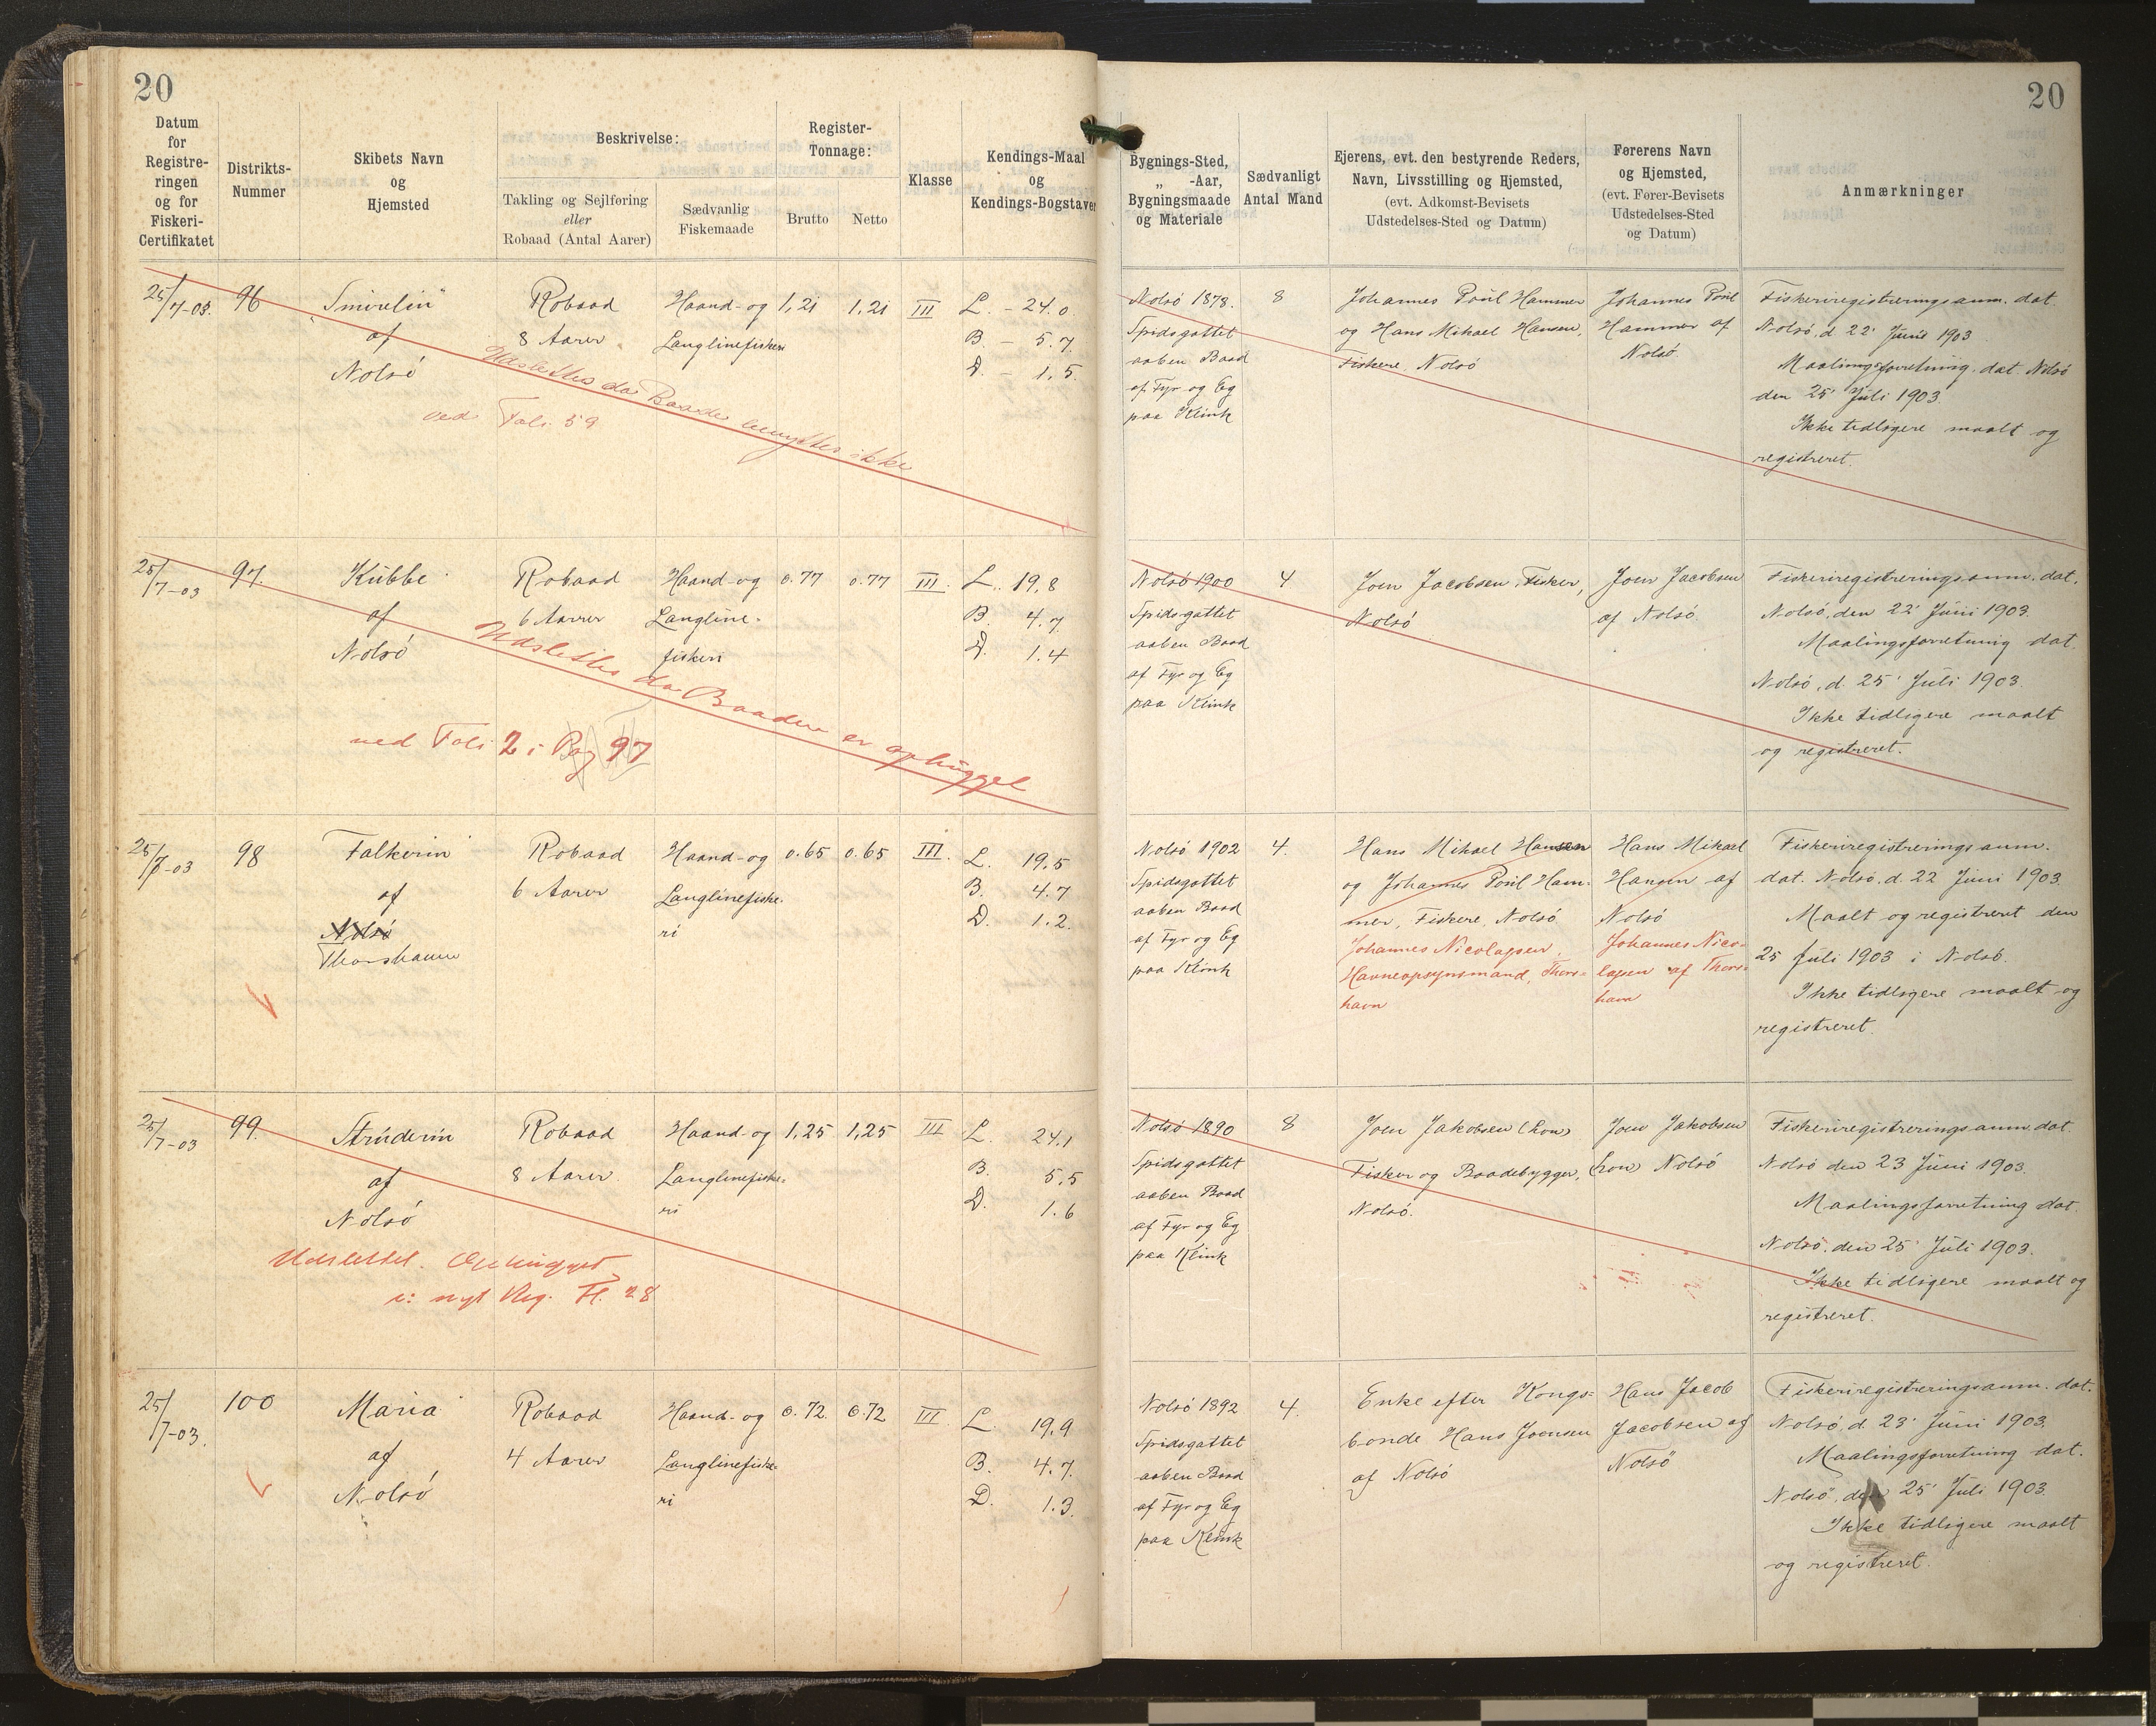 20
20
Datum
for
Registre-
ringen
og for
Fiskeri-
Certifikatet
Distrikts-
Nummer
Skibets Navn
og
Hjemsted
Beskrivelse:
Takling og Sejlføring
eller
Robaad (Antal Aarer)
Sædvanlig
Fiskemaade
Register-
Tonnage:
Brutto
Netto
Klasse
Kendings-Maal
og
Kendings-Bogstaver
Bygnings-Sted,
„ -Aar,
Bygningsmaade
og Materiale
Sædvanligt
Antal Mand
Ejerens, evt. den bestyrende Reders,
Navn, Livsstilling og Hjemsted,
(evt. Adkomst-Bevisets
Udstedelses-Sted og Datum)
Førerens Navn
og Hjemsted,
(evt. Fører-Bevisets
Udstedelses-Sted
og Datum)
Anmærkninger
25/7-03.
96
„Smirelin“
af
Nolsö
Robaad
8 Aarer
Haand- og
Langlinefiskeri
1,21
1,21
III
L. - 24.0
B. - 5.7
D. - 1.5.
Udslettes da Baaden benyttes ikke
ved Foli 59
Nolsö 1878.
Spidsgattet
aaben Baad
af Fyr og Eg
paa Klink
8
Johannes Poul Hammer
og Hans Mikael Hansen,
Fiskere, Nolsö
Johannes Poul
Hammer af
Nolsö.
Fiskeriregistreringsanm. dat.
Nolsö, d. 22' Juni 1903
Maalingsforretning dat. Nolsö
den 25' Juli 1903.
Ikke tidligere maalt og
registreret.
25/7-03
97.
Kubbe
af
Nolsö
Robaad
6 Aarer
Haand- og
Langline-
fiskeri
0.77
0.77
III.
L. 19,8
B. 4.7
D. 1.4
Udslettes da Baaden er ophugget
ved Foli 2 i Pag 97
Nolsö 1900
Spidsgattet
aaben Baad
af Fyr og Eg
paa Klink
4
Joen Jacobsen, Fisker,
Nolsö
Joen Jacobsen
af Nolsö.
Fiskeriregistreringsanm. dat.
Nolsö, den 22' Juni 1903.
Maalingsforretning dat.
Nolsö, d. 25' Juli 1903.
Ikke tidligere maalt
og registreret.
25/7-03
98
Falkurin
af
Nolsö
Thorshavn
Robaad
6 Aarer
Haand- og
Langlinefiske-
ri
0.65
0.65
III.
L. 19,5
B. 4.7
D. 1.2.
Nolsö 1902
Spidsgattet
aaben Baad
af Fyr og Eg
paa Klink
4.
Hans Mikael Hansen
og Johannes Poul Ham-
mer, Fiskere, Nolsö
Johannes Nicolajsen
Havneopsynsmand, Thors-
havn
Hans Mikael
Hansen af
Nolsö
Johannes Nico-
lajsen af Thors-
havn
Fiskeriregistreringsanm.
dat. Nolsö, d. 22 Juni 1903.
Maalt og registreret den
25 Juli 1903 i Nolsö.
Ikke tidligere maalt og
registreret.
25/7-03
99.
Strúdurin
af
Nolsö
Robaad
8 Aarer
Haand- og
Langlinefiske-
ri
1,25
1,25
III
L. 24,1
B. 5,5
D. 1.6
Udslettet. Ophugget
i: nyt Reg. Fl. 28
Nolsö 1890
Spidsgattet
aaben Baad
af Fyr og Eg
paa Klink
8
Joen Jakobsen
Fisker og Baadebygger,
Nolsö.
Joen Jakobsen
Nolsö
Fiskeriregistreringsanm. dat.
Nolsö den 23 Juni 1903.
Maalingsforretning dat.
Nolsö, den 25' Juli 1903.
Ikke tidligere maalt og
registreret.
25/7-03.
100
Maria
af
Nolsö
Robaad
4 Aarer
Haand- og
Langlinefiske-
ri
0.72.
0.72
III
L. 19,9
B. 4.7.
D. 1.3.
Nolsö 1892
Spidsgattet
aaben Baad
af Fyr og Eg
paa Klink
4.
Enke efter Kongs-
bonde Hans Joensen
af Nolsö
Hans Jacob
Jacobsen af
Nolsö
Fiskeriregistreringsanm. dat.
Nolsö, d. 23' Juni 1903.
Maalingsforretning dat.
Nolsö, den 25' Juli 1903.
Ikke tidligere maalt
og registreret.